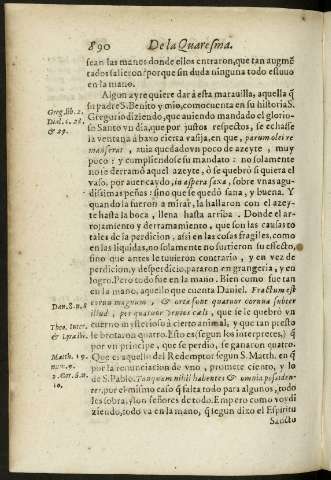 890 De la Quaresma.
sean las manos donde ellos entraron, que tan augmē
tados salieron? porque sin duda ninguna todo estuuo
en la mano.
Algun ayre quiere dar á esta marauilla, aquella q̃
su padre S. Benito y mio, como cuenta en su historia S.
Greg. lib. 2.
Gregorio diziendo, que auiendo mandado el glorio-
Dial. c. 28.
so Santo vn dia, que por justos respectos, se echasse
& 29.
la ventana á baxo cierta vasija, en que, parum olei re
manserat, auia quedado vn poco de azeyte, muy
poco: y cumpliendose su mandato: no solamente
no se derramó aquel azeyte, ó se quebró si quiera el
vaso, por auer caydo, in aspera saxa, sobre vnas agu-
dissimas peñas: sino que se quedó sana, y buena. Y
quando la fueron a mirar, la hallaron con el azey-
te hasta la boca, llena hasta arriba. Donde el ar-
rojamiento y derramamiento, que son las causas to
tales de la perdicion, assi en las cosas fragiles, como
en las liquidas, no solamente no surtieron su effecto,
sino que antes le tuuieron contrario, y en vez de
perdicion, y desperdicio, pararon en grangeria, y en
logro. Pero todo fue en la mano. Bien como fue tan
en la mano, aquello que cuenta Daniel. Fractum est
Dan. 8. n. 8
cornu magnum, & orta sunt quatuor cornua subter
illud, per quatuor ventos cæli, que se le quebró vn
Theo. Inter.
cuerno mysterioso á cierto animal, y que tan presto
& Lyra ibi.
le brotaron quatro. Esto es (segun los interpretes) q̃
por vn principe, que se perdio, se ganaron quatro.
Matth. 19.
Que es aquello del Redemptor segun S. Matth. en q̃
num. 9.
por la renunciacion de vno, promete ciento, y lo
2. Cor. 6. n.
de S. Pablo. Tanquam nihil habentes & omnia possiden-
10.
tes, por el mismo caso q̃ falta todo para algunos, todo
les sobra, y son señores de todo. Empero como voy di
ziendo, todo va en la mano, q̃ segun dixo el Espiritu
Sancto